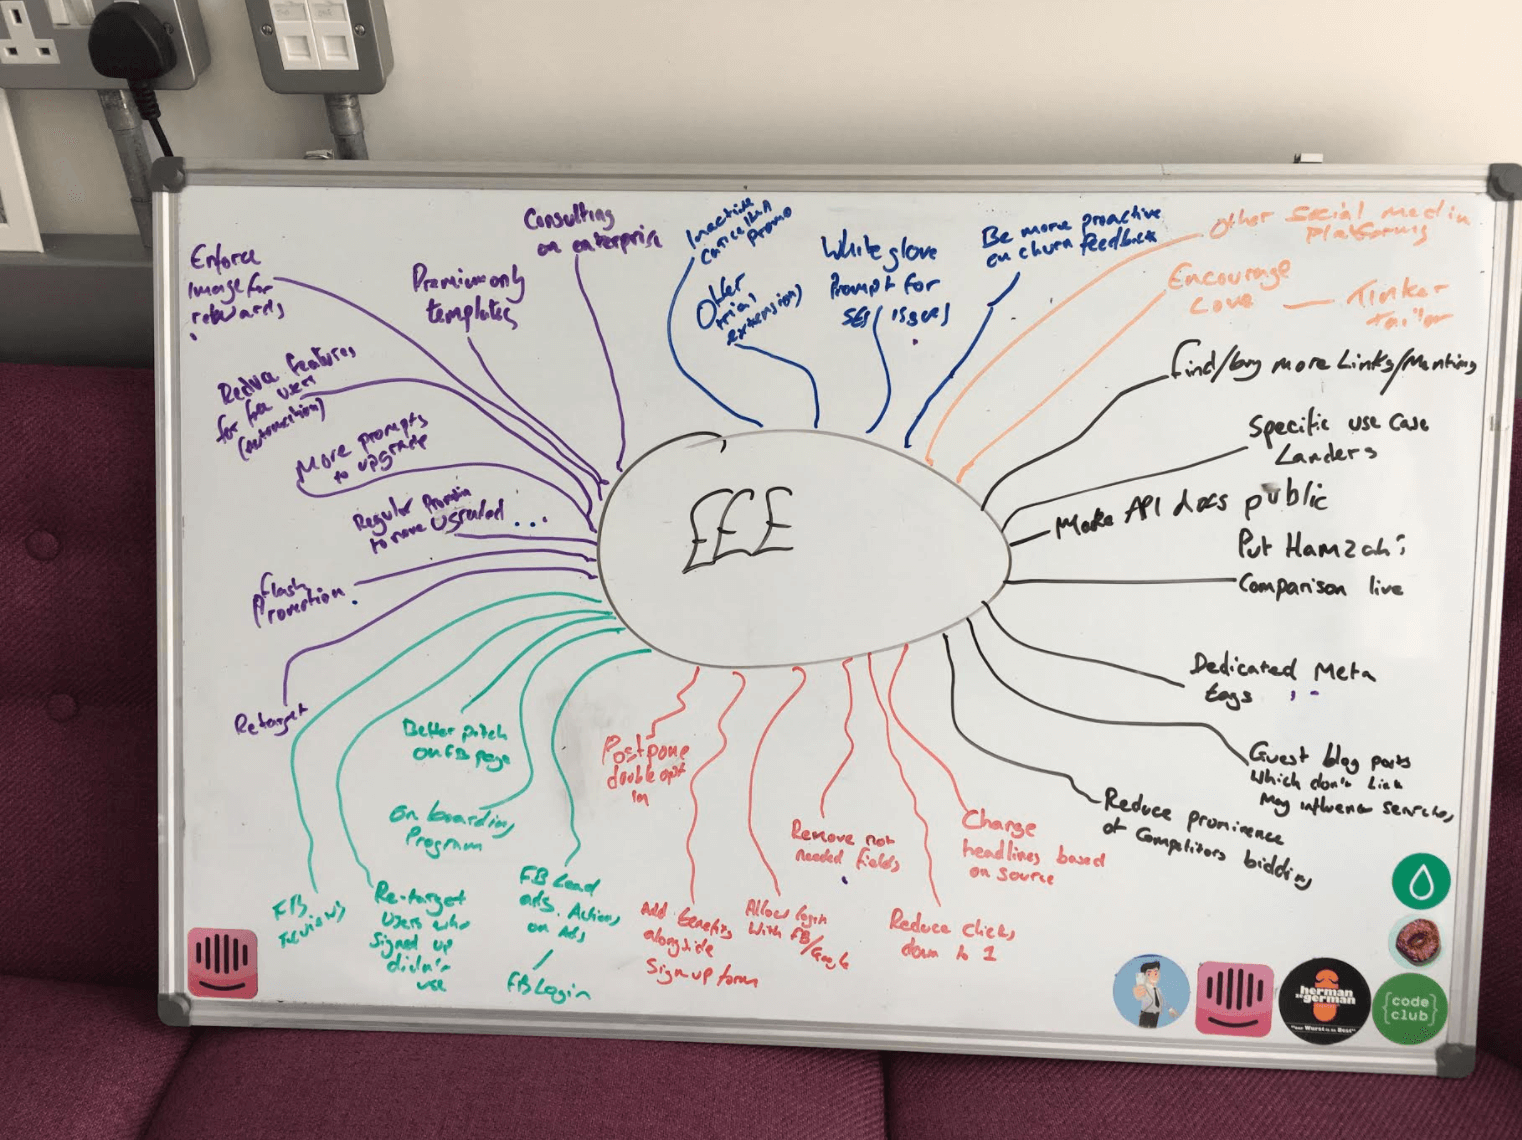 Enforce
image for
rewards
Premium only
templates
Consulting
on enterprise
Reduce features
for free users
(automation)
More prompts
to upgrade
Regular
to move
Flash
Promotion
Retarget
Inactive
cancellation
promo
Offer
trial
extensions
White glove
Prompt for
SES / issues
Be more proactive
on churn feedback
Other Social media
Platforms
Encourage
Love — Tinker
Tailor
Find/buy more Links/Mentions
Specific use case
Landers
Make API docs public
Put Hamzah's
Comparison live
Dedicated Meta
tags
Guest blog posts
Which don't Link
May influence searches
Reduce prominence
of Competitors bidding
£££
FB
reviews
Re-target
users who
signed up
didn't
use
Better pitch
on FB page
On boarding
Program
FB Lead
ads. Actions
on Ads
/
FB Login
Postpone
double opt
in
Add benefits
alongside
Sign up form
Allow login
with FB
/Google
Remove not
needed fields
Reduce clicks
down to 1
Change
headlines based
on source
herman
ze german
"our Wurst is de Best"
{code
club}